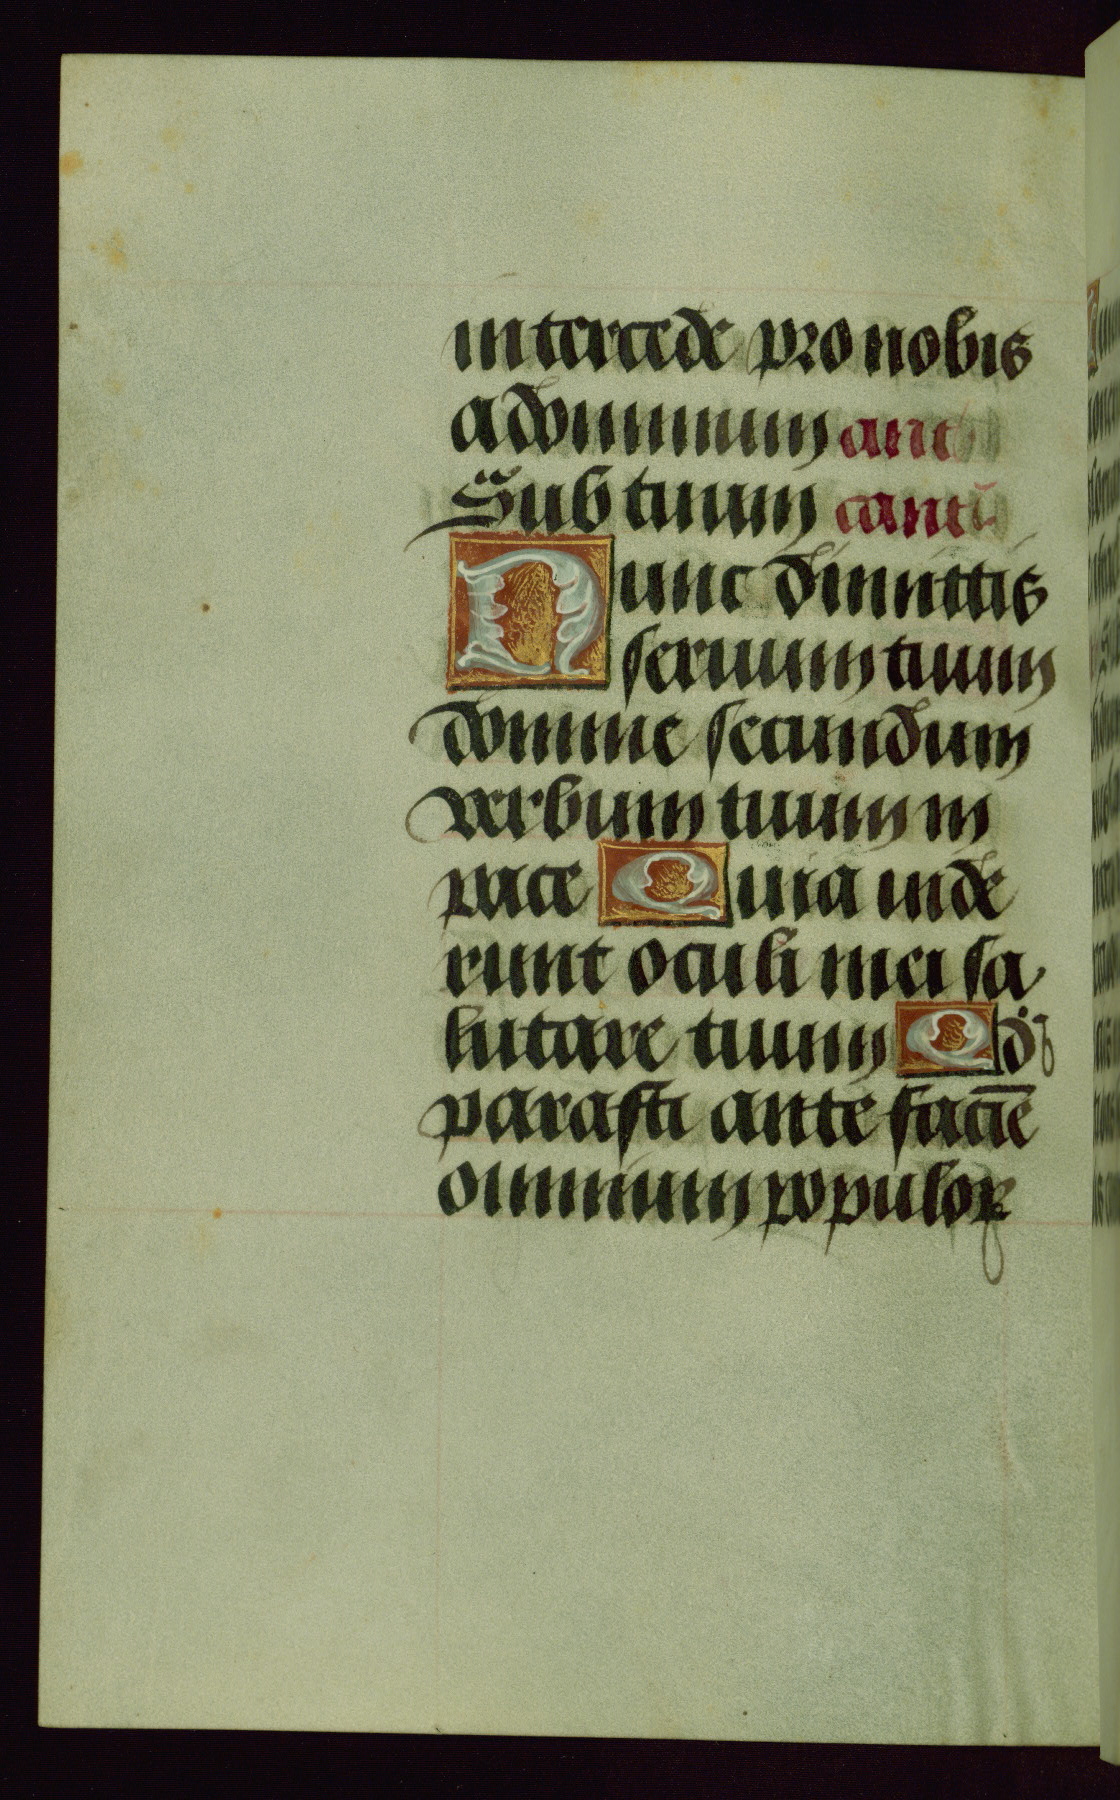 intercede pro nobis
ad dominum ant
Sub tuum cantū
Nunc dimittis
seruum tuum
domine secundum
verbum tuum in
pace Quia uide
runt oculi mei sa
lutare tuum Qd
parasti ante faciē
omnium populoꝝ